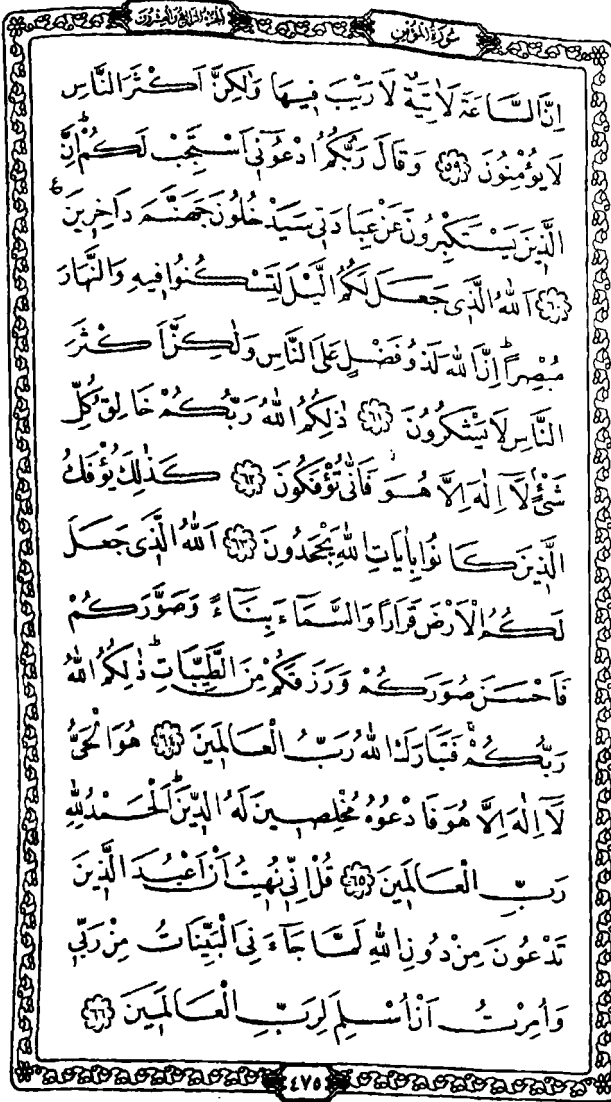 الجزء الرابع والعشرون
سورة المؤمن
اِنَّ السَّاعَةَ لَاٰتِيَةٌ لَا رَيْبَ فٖيهَا وَلٰكِنَّ اَكْثَرَ النَّاسِ
لَا يُؤْمِنُونَ ﴿٥٩﴾ وَقَالَ رَبُّكُمُ ادْعُونٖٓى اَسْتَجِبْ لَكُمْؕ اِنَّ
الَّذٖينَ يَسْتَكْبِرُونَ عَنْ عِبَادَتٖى سَيَدْخُلُونَ جَهَنَّمَ دَاخِرٖينَ ع
﴿٦٠﴾ اَللّٰهُ الَّذٖى جَعَلَ لَكُمُ الَّيْلَ لِتَسْكُنُوا فٖيهِ وَالنَّهَارَ
مُبْصِراًؕ اِنَّ اللّٰهَ لَذُو فَضْلٍ عَلَى النَّاسِ وَلٰكِنَّ اَكْثَرَ
النَّاسِ لَا يَشْكُرُونَ ﴿٦١﴾ ذٰلِكُمُ اللّٰهُ رَبُّكُمْ خَالِقُ كُلِّ
شَیْءٍۘ لَٓا اِلٰهَ اِلَّا هُوَؗ فَاَنّٰى تُؤْفَكُونَ ﴿٦٢﴾ كَذٰلِكَ يُؤْفَكُ
الَّذٖينَ كَانُوا بِاٰيَاتِ اللّٰهِ يَجْحَدُونَ ﴿٦٣﴾ اَللّٰهُ الَّذٖى جَعَلَ
لَكُمُ الْاَرْضَ قَرَاراً وَالسَّمَٓاءَ بِنَٓاءً وَصَوَّرَكُمْ
فَاَحْسَنَ صُوَرَكُمْ وَرَزَقَكُمْ مِنَ الطَّيِّبَاتِؕ ذٰلِكُمُ اللّٰهُ
رَبُّكُمْۚ فَتَبَارَكَ اللّٰهُ رَبُّ الْعَالَمٖينَ ﴿٦٤﴾ هُوَ الْحَىُّ
لَٓا اِلٰهَ اِلَّا هُوَ فَادْعُوهُ مُخْلِصٖينَ لَهُ الدّٖينَؕ اَلْحَمْدُ لِلّٰهِ
رَبِّ الْعَالَمٖينَ ﴿٦٥﴾ قُلْ اِنّٖى نُهٖيتُ اَنْ اَعْبُدَ الَّذٖينَ
تَدْعُونَ مِنْ دُونِ اللّٰهِ لَمَّا جَٓاءَنِىَ الْبَيِّنَاتُ مِنْ رَبّٖى
وَاُمِرْتُ اَنْ اُسْلِمَ لِرَبِّ الْعَالَمٖينَ ﴿٦٦﴾
٤٧٥